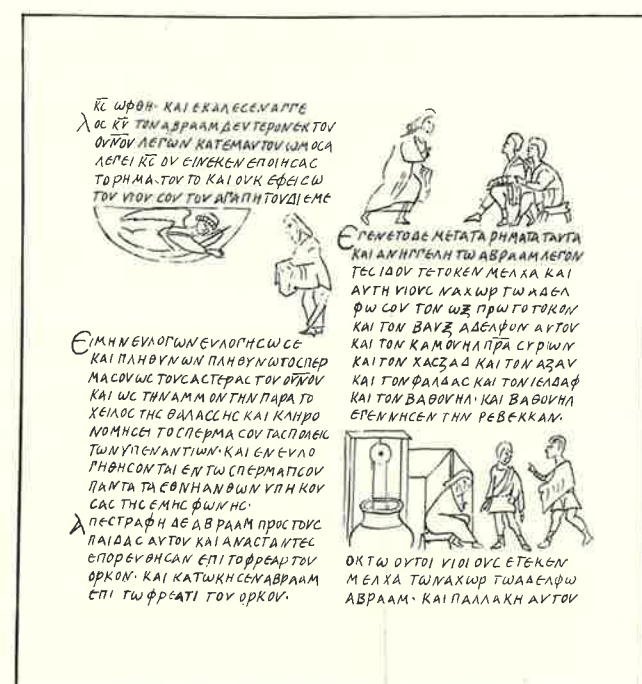 Κ̅Ϲ̅ ΩΦΘΗ· ΚΑΙ ΕΚΑΛΕϹΕΝ ΑΓΓΕ
ΛΟϹ Κ̅Υ̅ ΤΟΝ ΑΒΡΑΑΜ ΔΕΥΤΕΡΟΝ ΕΚ ΤΟΥ
ΟΥ̅Ν̅Ο̅Υ ΛΕΓΩΝ ΚΑΤ ΕΜΑΥΤΟΥ ΩΜΟϹΑ
ΛΕΓΕΙ Κ̅Ϲ̅ ΟΥ ΕΙΝΕΚΕΝ ΕΠΟΙΗϹΑϹ
ΤΟ ΡΗΜΑ ΤΟΥΤΟ ΚΑΙ ΟΥΚ ΕΦΕΙϹΩ
ΤΟΥ ΥΙΟΥ ϹΟΥ ΤΟΥ ΑΓΑΠΗΤΟΥ ΔΙ ΕΜΕ
ΕΙ ΜΗΝ ΕΥΛΟΓΩΝ ΕΥΛΟΓΗϹΩ ϹΕ
ΚΑΙ ΠΛΗΘΥΝΩΝ ΠΛΗΘΥΝΩ ΤΟ ϹΠΕΡ
ΜΑ ϹΟΥ ΩϹ ΤΟΥϹ ΑϹΤΕΡΑϹ ΤΟΥ ΟΥ̅Ν̅Ο̅Υ
ΚΑΙ ΩϹ ΤΗΝ ΑΜΜΟΝ ΤΗΝ ΠΑΡΑ ΤΟ
ΧΕΙΛΟϹ ΤΗϹ ΘΑΛΑϹϹΗϹ ΚΑΙ ΚΛΗΡΟ
ΝΟΜΗϹΕΙ ΤΟ ϹΠΕΡΜΑ ϹΟΥ ΤΑϹ ΠΟΛΕΙϹ
ΤΩΝ ΥΠΕΝΑΝΤΙΩΝ· ΚΑΙ ΕΝΕΥΛΟ
ΓΗΘΗϹΟΝΤΑΙ ΕΝ ΤΩ ϹΠΕΡΜΑΤΙ ϹΟΥ
ΠΑΝΤΑ ΤΑ ΕΘΝΗ ΑΝΘ ΩΝ ΥΠΗΚΟΥ
ϹΑϹ ΤΗϹ ΕΜΗϹ ΦΩΝΗϹ·
ΑΠΕϹΤΡΑΦΗ ΔΕ ΑΒΡΑΑΜ ΠΡΟϹ ΤΟΥϹ
ΠΑΙΔΑϹ ΑΥΤΟΥ ΚΑΙ ΑΝΑϹΤΑΝΤΕϹ
ΕΠΟΡΕΥΘΗϹΑΝ ΕΠΙ ΤΟ ΦΡΕΑΡ ΤΟΥ
ΟΡΚΟΥ· ΚΑΙ ΚΑΤΩΚΗϹΕΝ ΑΒΡΑΑΜ
ΕΠΙ ΤΩ ΦΡΕΑΤΙ ΤΟΥ ΟΡΚΟΥ·
ΕΓΕΝΕΤΟ ΔΕ ΜΕΤΑ ΤΑ ΡΗΜΑΤΑ ΤΑΥΤΑ
ΚΑΙ ΑΝΗΓΓΕΛΗ ΤΩ ΑΒΡΑΑΜ ΛΕΓΟΝ
ΤΕϹ ΙΔΟΥ ΤΕΤΟΚΕΝ ΜΕΛΧΑ ΚΑΙ
ΑΥΤΗ ΥΙΟΥϹ ΝΑΧΩΡ ΤΩ ΑΔΕΛ
ΦΩ ϹΟΥ ΤΟΝ ΩΞ ΠΡΩΤΟΤΟΚΟΝ
ΚΑΙ ΤΟΝ ΒΑΥΞ ΑΔΕΛΦΟΝ ΑΥΤΟΥ
ΚΑΙ ΤΟΝ ΚΑΜΟΥΗΛ Π̅Ρ̅Α̅ ϹΥΡΙΩΝ
ΚΑΙ ΤΟΝ ΧΑϹΖΑΔ ΚΑΙ ΤΟΝ ΑΖΑΥ
ΚΑΙ ΤΟΝ ΦΑΛΔΑϹ ΚΑΙ ΤΟΝ ΙΕΛΔΑΦ
ΚΑΙ ΤΟΝ ΒΑΘΟΥΗΛ· ΚΑΙ ΒΑΘΟΥΗΛ
ΕΓΕΝΝΗϹΕΝ ΤΗΝ ΡΕΒΕΚΚΑΝ·
ΟΚΤΩ ΟΥΤΟΙ ΥΙΟΙ ΟΥϹ ΕΤΕΚΕΝ
ΜΕΛΧΑ ΤΩ ΝΑΧΩΡ ΤΩ ΑΔΕΛΦΩ
ΑΒΡΑΑΜ· ΚΑΙ ΠΑΛΛΑΚΗ ΑΥΤΟΥ